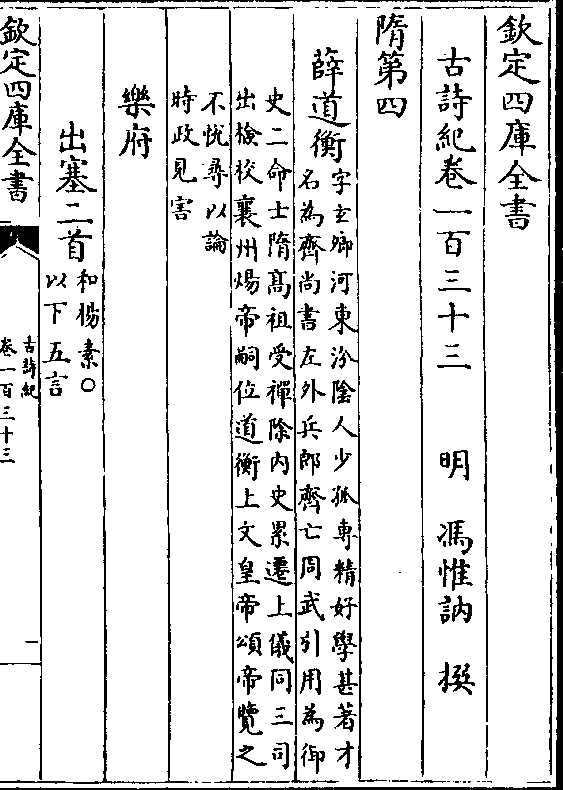 欽定四庫全書
古詩紀卷一百三十三　明　馮惟訥　撰
隋第四
薛道衡字玄卿河東汾隂人少孤專精好學甚著才
名為齊尚書左外兵郎齊亡周武引用為御
史二命士隋髙祖受禪除内史累遷上儀同三司
出檢校襄州煬帝嗣位道衡上文皇帝頌帝覽之
不恱尋以論
時政見害
樂府
出塞二首和楊素○
以下五言
欽定四庫全書
古詩紀
卷一百三十三
一